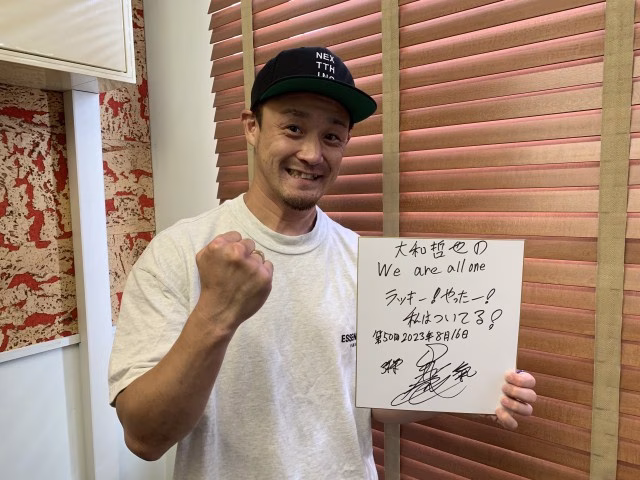 NEX
TTH
ING
ESSEN
大和哲也の
We are all one
ラッキー!やったー!
私はついてる!
第50回 2023年8月16日